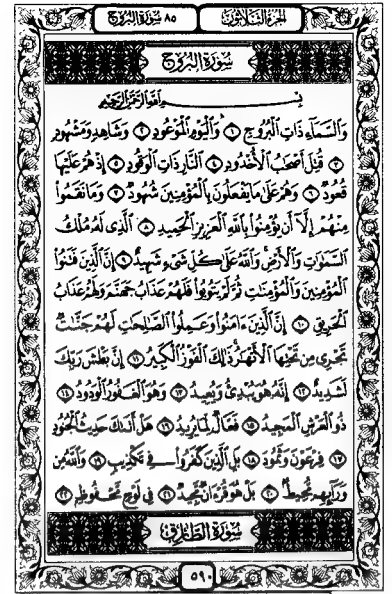 ٨٥ سورة البروج
الجزء الثلاثون
سُورَةُ الْبُرُوجِ
بِسْمِ اللَّهِ الرَّحْمَٰنِ الرَّحِيمِ
وَالسَّمَآءِ ذَاتِ الْبُرُوجِ ١ وَالْيَوْمِ الْمَوْعُودِ ٢ وَشَاهِدٍ وَمَشْهُودٍ
٣ قُتِلَ أَصْحَٰبُ الْأُخْدُودِ ٤ النَّارِ ذَاتِ الْوَقُودِ ٥ إِذْ هُمْ عَلَيْهَا
قُعُودٌ ٦ وَهُمْ عَلَىٰ مَا يَفْعَلُونَ بِالْمُؤْمِنِينَ شُهُودٌ ٧ وَمَا نَقَمُوا
مِنْهُمْ إِلَّآ أَن يُؤْمِنُوا بِاللَّهِ الْعَزِيزِ الْحَمِيدِ ٨ الَّذِي لَهُ مُلْكُ
السَّمَٰوَٰتِ وَالْأَرْضِ وَاللَّهُ عَلَىٰ كُلِّ شَيْءٍ شَهِيدٌ ٩ إِنَّ الَّذِينَ فَتَنُوا
الْمُؤْمِنِينَ وَالْمُؤْمِنَٰتِ ثُمَّ لَمْ يَتُوبُوا فَلَهُمْ عَذَابُ جَهَنَّمَ وَلَهُمْ عَذَابُ
الْحَرِيقِ ١٠ إِنَّ الَّذِينَ ءَامَنُوا وَعَمِلُوا الصَّالِحَاتِ لَهُمْ جَنَّٰتٌ
تَجْرِي مِن تَحْتِهَا الْأَنْهَٰرُ ذَٰلِكَ الْفَوْزُ الْكَبِيرُ ١١ إِنَّ بَطْشَ رَبِّكَ
لَشَدِيدٌ ١٢ إِنَّهُ هُوَ يُبْدِئُ وَيُعِيدُ ١٣ وَهُوَ الْغَفُورُ الْوَدُودُ ١٤
ذُو الْعَرْشِ الْمَجِيدُ ١٥ فَعَّالٌ لِّمَا يُرِيدُ ١٦ هَلْ أَتَىٰكَ حَدِيثُ الْجُنُودِ
١٧ فِرْعَوْنَ وَثَمُودَ ١٨ بَلِ الَّذِينَ كَفَرُوا فِي تَكْذِيبٍ ١٩ وَاللَّهُ مِن
وَرَآئِهِم مُّحِيطٌ ٢٠ بَلْ هُوَ قُرْءَانٌ مَّجِيدٌ ٢١ فِي لَوْحٍ مَّحْفُوظٍ ٢٢
سُورَةُ الطَّارِقِ
٥٩٠